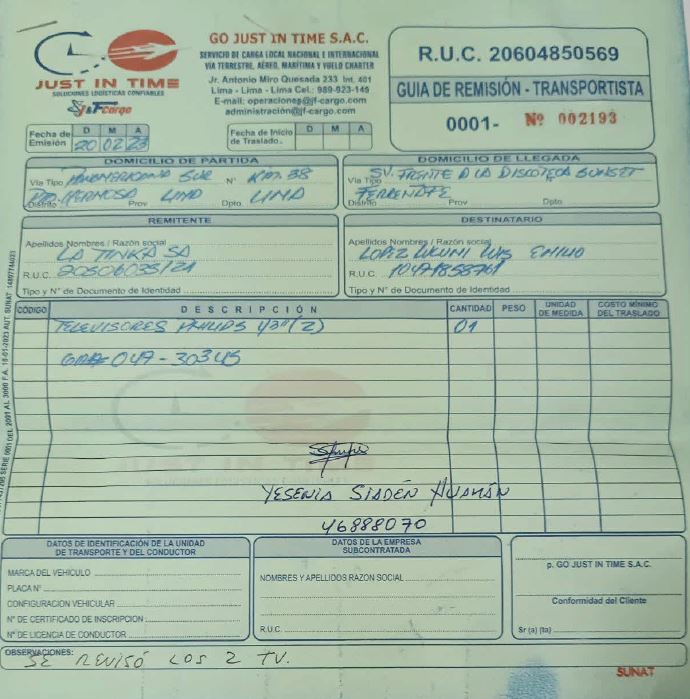 JUST IN TIME
SOLUCIONES LOGÍSTICAS CONFIABLES
J&F cargo
GO JUST IN TIME S.A.C.
SERVICIO DE CARGA LOCAL NACIONAL E INTERNACIONAL
VÍA TERRESTRE, AÉREO, MARÍTIMA Y VUELO CHARTER
Jr. Antonio Miro Quesada 233 Int. 401
Lima - Lima - Lima Cel.: 989-923-145
E-mail: operaciones@jf-cargo.com
administracion@jf-cargo.com
R.U.C. 20604850569
GUIA DE REMISIÓN - TRANSPORTISTA
0001- Nº 002193
Fecha de Emisión D M A
20 02 23
Fecha de Inicio de Traslado. D M A
DOMICILIO DE PARTIDA
Vía Tipo Panamericana Sur N° Km. 38
Distrito Pta. Hermosa Prov LIMA Dpto LIMA
DOMICILIO DE LLEGADA
Vía Tipo SV. FRENTE A LA DISCOTECA SUNSET
Distrito FERREÑAFE Prov Dpto.
REMITENTE
Apellidos Nombres / Razón social
LA TINKA SA
R.U.C.
Tipo y N° de Documento de Identidad
DESTINATARIO
Apellidos Nombres / Razón social
LOPEZ LUIS EMILIO
R.U.C.
Tipo y N° de Documento de Identidad
CÓDIGO DESCRIPCIÓN CANTIDAD PESO UNIDAD DE MEDIDA COSTO MÍNIMO DEL TRASLADO
TELEVISORES PHILIPS 43" (2) 01
047 - 30345
YESENIA SIADÉN HUAMÁN
46888070
DATOS DE IDENTIFICACIÓN DE LA UNIDAD
DE TRANSPORTE Y DEL CONDUCTOR
MARCA DEL VEHÍCULO
PLACA N°
CONFIGURACIÓN VEHICULAR
N° DE CERTIFICADO DE INSCRIPCIÓN
N° DE LICENCIA DE CONDUCTOR
DATOS DE LA EMPRESA
SUBCONTRATADA
NOMBRES Y APELLIDOS RAZON SOCIAL
R.U.C.
p. GO JUST IN TIME S.A.C.
Conformidad del Cliente
Sr (a) (ta)
OBSERVACIONES:
SE REVISÓ LOS 2 TV.
SUNAT